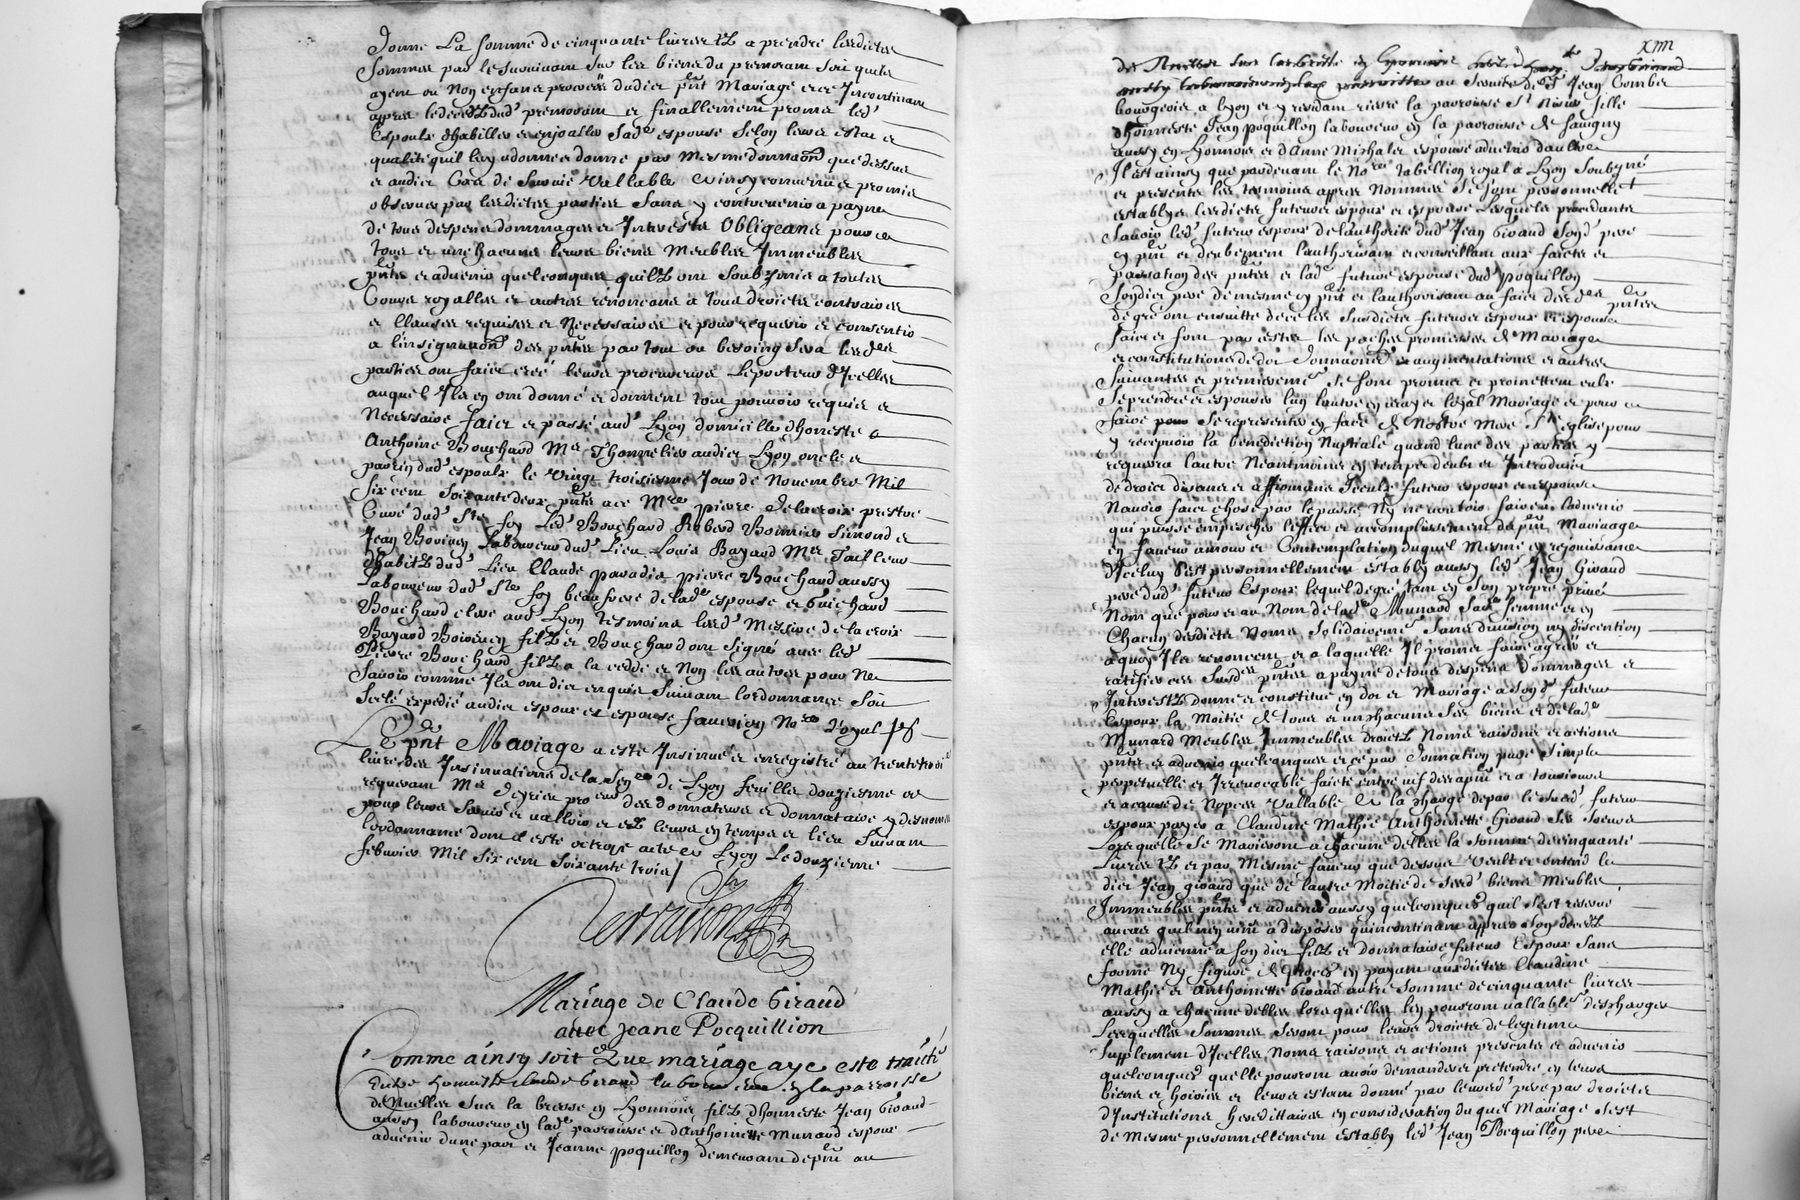 donne La somme de cinquante liures tz a prendre lesdictes
sommes par le suruiuant sur les biens du premourant soit quils
ayent ou Non enfans procrees dudict pnt Mariage et ce Incontinant
apres le deceds dud premourant et finallement promet led
Espoulx dhabiller et enjoaller sad espouse selon leurs estat et
qualité quil luy a donne et donne par mesme donnaon que dessus
et audict Cas de suruie Vallable ainsy conuenu et promis
obseruer par lesdictes parties sans y contreuenir a payne
de tous despens dommages et Interests Obligeans pour ce
tous et un chacuns leurs biens Meubles Immeubles
pnts et aduenir quelconques quilz ont soubzmis a toutes
Cours royalles et autres renonceans a tous droicts contraires
et Clauses requises et Necessaires et pour requerir et consentir
a linsignuaon des pntes par tout ou besoing sera lesdes
parties ont faict creé leurs procureurs Le porteur d'Icelles
auquel Ils en ont donné et donnent tout pouuoir requis et
Necessaire faict et passé aud Lyon domicille dhoneste
Anthoine Bouchard Me Thonnelier audict Lyon oncle et
parrin dud espoulx le Vingt troisiesme Jour de Nouembre Mil
six cent soixante deux pnts ace Mre pierre delacroix prestre
Curé dud Ste foy Led Bouchard Roberd Bonnier Simond et
Jean Boviren Laboureurs dud Lieu Louis Bayard Me Tailleur
dhabitz dud Lieu Claude paradis pierre Bouchard aussy
Laboureur dud Ste foy beaufrere de lad espouse et Guichard
Bouchard clerc aud Lyon tesmoins lesd Messire de la croix
Bayard Boviren filz et Bouchard ont signé auec led
Pierre Bouchard filz a la cedde et Non les autres pour ne
sauoir comme Ils ont dict enquis suiuant lordonnance soit
scelé expedié audict espoux et espouse fauerjon Nore Royal
Le pnt Mariage a esté Insinué et enregistré au trente trois
liure des Insinuations de la senee de Lyon feuille douziesme ce
requerant Me deyrieu procur des donnateurs et donnataire y desnommes
pour leurs seruir et valloir et etz leurs en temps et lieu suiuant
lordonnance dont a esté octroyé acte a Lyon Le douzieme
febvrier Mil six cent soixante trois
Terrasson
Mariage de Claude Giraud
auec Jeane Pocquillion
Comme ainsy soit Que mariage aye este traicté
Entre honneste claude Giraud laboureur en la parroisse
de Nuelles sur la bresse en Lyonnois filz dhonneste Jean Giraud
aussy laboureur en lad parroisse et d'Anthoinette Munard espoux
aduenir dune part et Jeanne poquillon demeurant depnt au
XIIII
au seruice de Sr Jean Combes
bourgeois a Lyon et y residant riere la parroisse St Nisier fille
dhonneste Jean poquillon laboureur en la parroisse de sauigny
aussy en Lyonnois et d'Anne Michalet espouse aduenir dautre
Il est ainsy que pardeuant le Nore tabellion royal a Lyon soubzné
et presents les tesmoins apres Nommes se sont personnellet
establys lesdicts futeurs espoux et espouse Lesquels procedants
sauoir led futeur espoux de lauthorité dud Jean Giraud sond pere
cy pnt et deubement lauthorisant et conseillant aux faicts et
passation des pntes et lad future espouse dud poquillon
sondict pere de mesme cy pnt et lauthorisant au faict desdes pntes
de gré ont ensuitte de ce les susdicts futeurs espoux et espouse
faict et font par ester les paches promesses de Mariage
et constitutions de dot donnaons et augmentations et autres
suiuantes et premieremt se sont promis et promettent eulx
se prendre et espouser lun lautre en vray et legal Mariage et pour ce
faire pour se representer en face de Nostre Mere Ste eglise pour
y receuoir la benediction Nuptiale quand lune des parties y
requerra lautre Neantmoins en temps deub et Introduit
de droict disants et affirmants Iceulx futeur espoux et espouse
Nauoir faict chose par le passé Ny ne vouloir faire a laduenir
qui puisse empescher leffect et accomplissement du pnt Mariage
en faueur amour et Contemplation duquel mesme en rejouissance
d'Iceluy s'est personnellement estably aussy led Jean Giraud
pere dud futeur Espoux lequel de gré tant en son propre priué
Nom que pour et au Nom de lad Munard sad femme et en
Chacun desdicts Noms solidairemt sans diuision ny discention
a quoy Ils renoncent et a laquelle Il promet faire agréer et
ratifier ces susd pntes a payne de tous despens dommages et
Interestz donne et constitue en dot et Mariage a sond futeur
Espoux la Moitie de tous et un chacuns ses biens et de lad
Munard Meubles Immeubles droictz Noms raisons et actions
pnts et aduenir quelconques et ce par donnation pure simple
perpetuelle et Irreuocable faicte entre vif des apnt et a tousiours
et acause de Nopces Vallable et a la charge de par le sued futeur
espoux payer a Claudine Mathie Anthoinette Giraud ses soeurs
Lorsquelle se Marieront a chacune delles la somme de cinquante
Liures tz et par Mesme faueur que dessus veult et entend le
dict Jean giraud que de lautre Moitié de sesd biens Meubles
Immeubles pnts et aduenir aussy quelconques quil s'est reserué
aucas quil n'en vint a disposer quincontinant apres son decedz
elle aduienne a son dict filz et donnataire futeur Espoux sans
forme Ny figure de proces en payant auxdictes Claudine
Mathie et anthoinette Giraud autre somme de cinquante liures
aussy a chacune delles lors quelles les pourront vallablet descharger
Lesquelles sommes seront pour leurs droicts de legitime
supplement d'Icelles Noms raisons et actions presents et aduenir
quelconques quelle pourront auoir demander et pretendre en leurs
biens et hoiries et leurs estant donné par leurd pere par droicts
d'Institutions hereditaires en consideration duquel Mariage s'est
de mesme personnellement estably led Jean Pocquillon pere